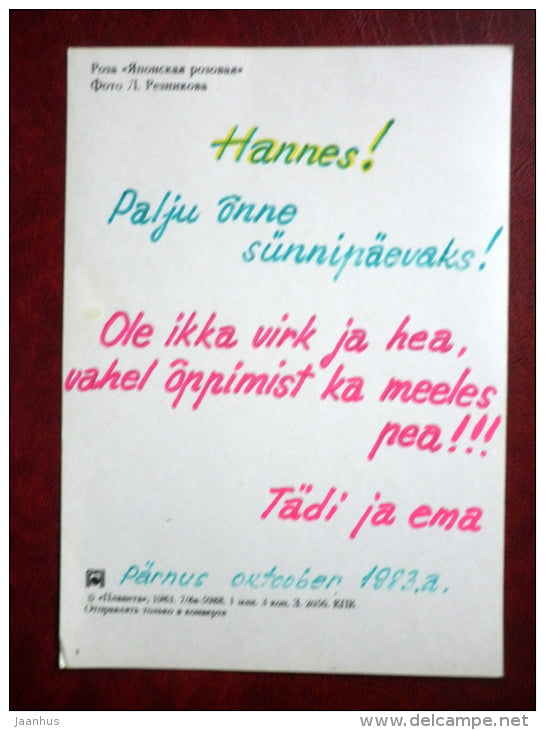 Роза «Японская розовая»
Фото Л. Резникова
Hannes!
Palju õnne
sünnipäevaks!
Ole ikka virk ja hea,
vahel õppimist ka meeles
pea!!!
Tädi ja ema
Pärnus oktoober 1983.a.
© «Планета», 1983. 7/8а-5988. 1 млн. 3 коп. З. 2056. КПК
Отправлять только в конверте
jaanhus
www.delcampe.net